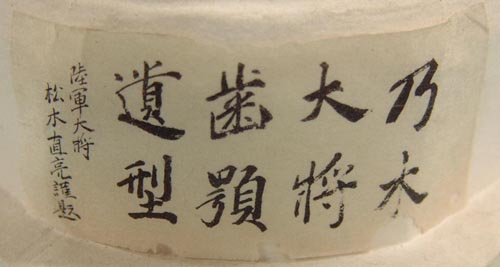 乃木
大將
歯顎
遺型
陸軍大将
松木直亮謹題